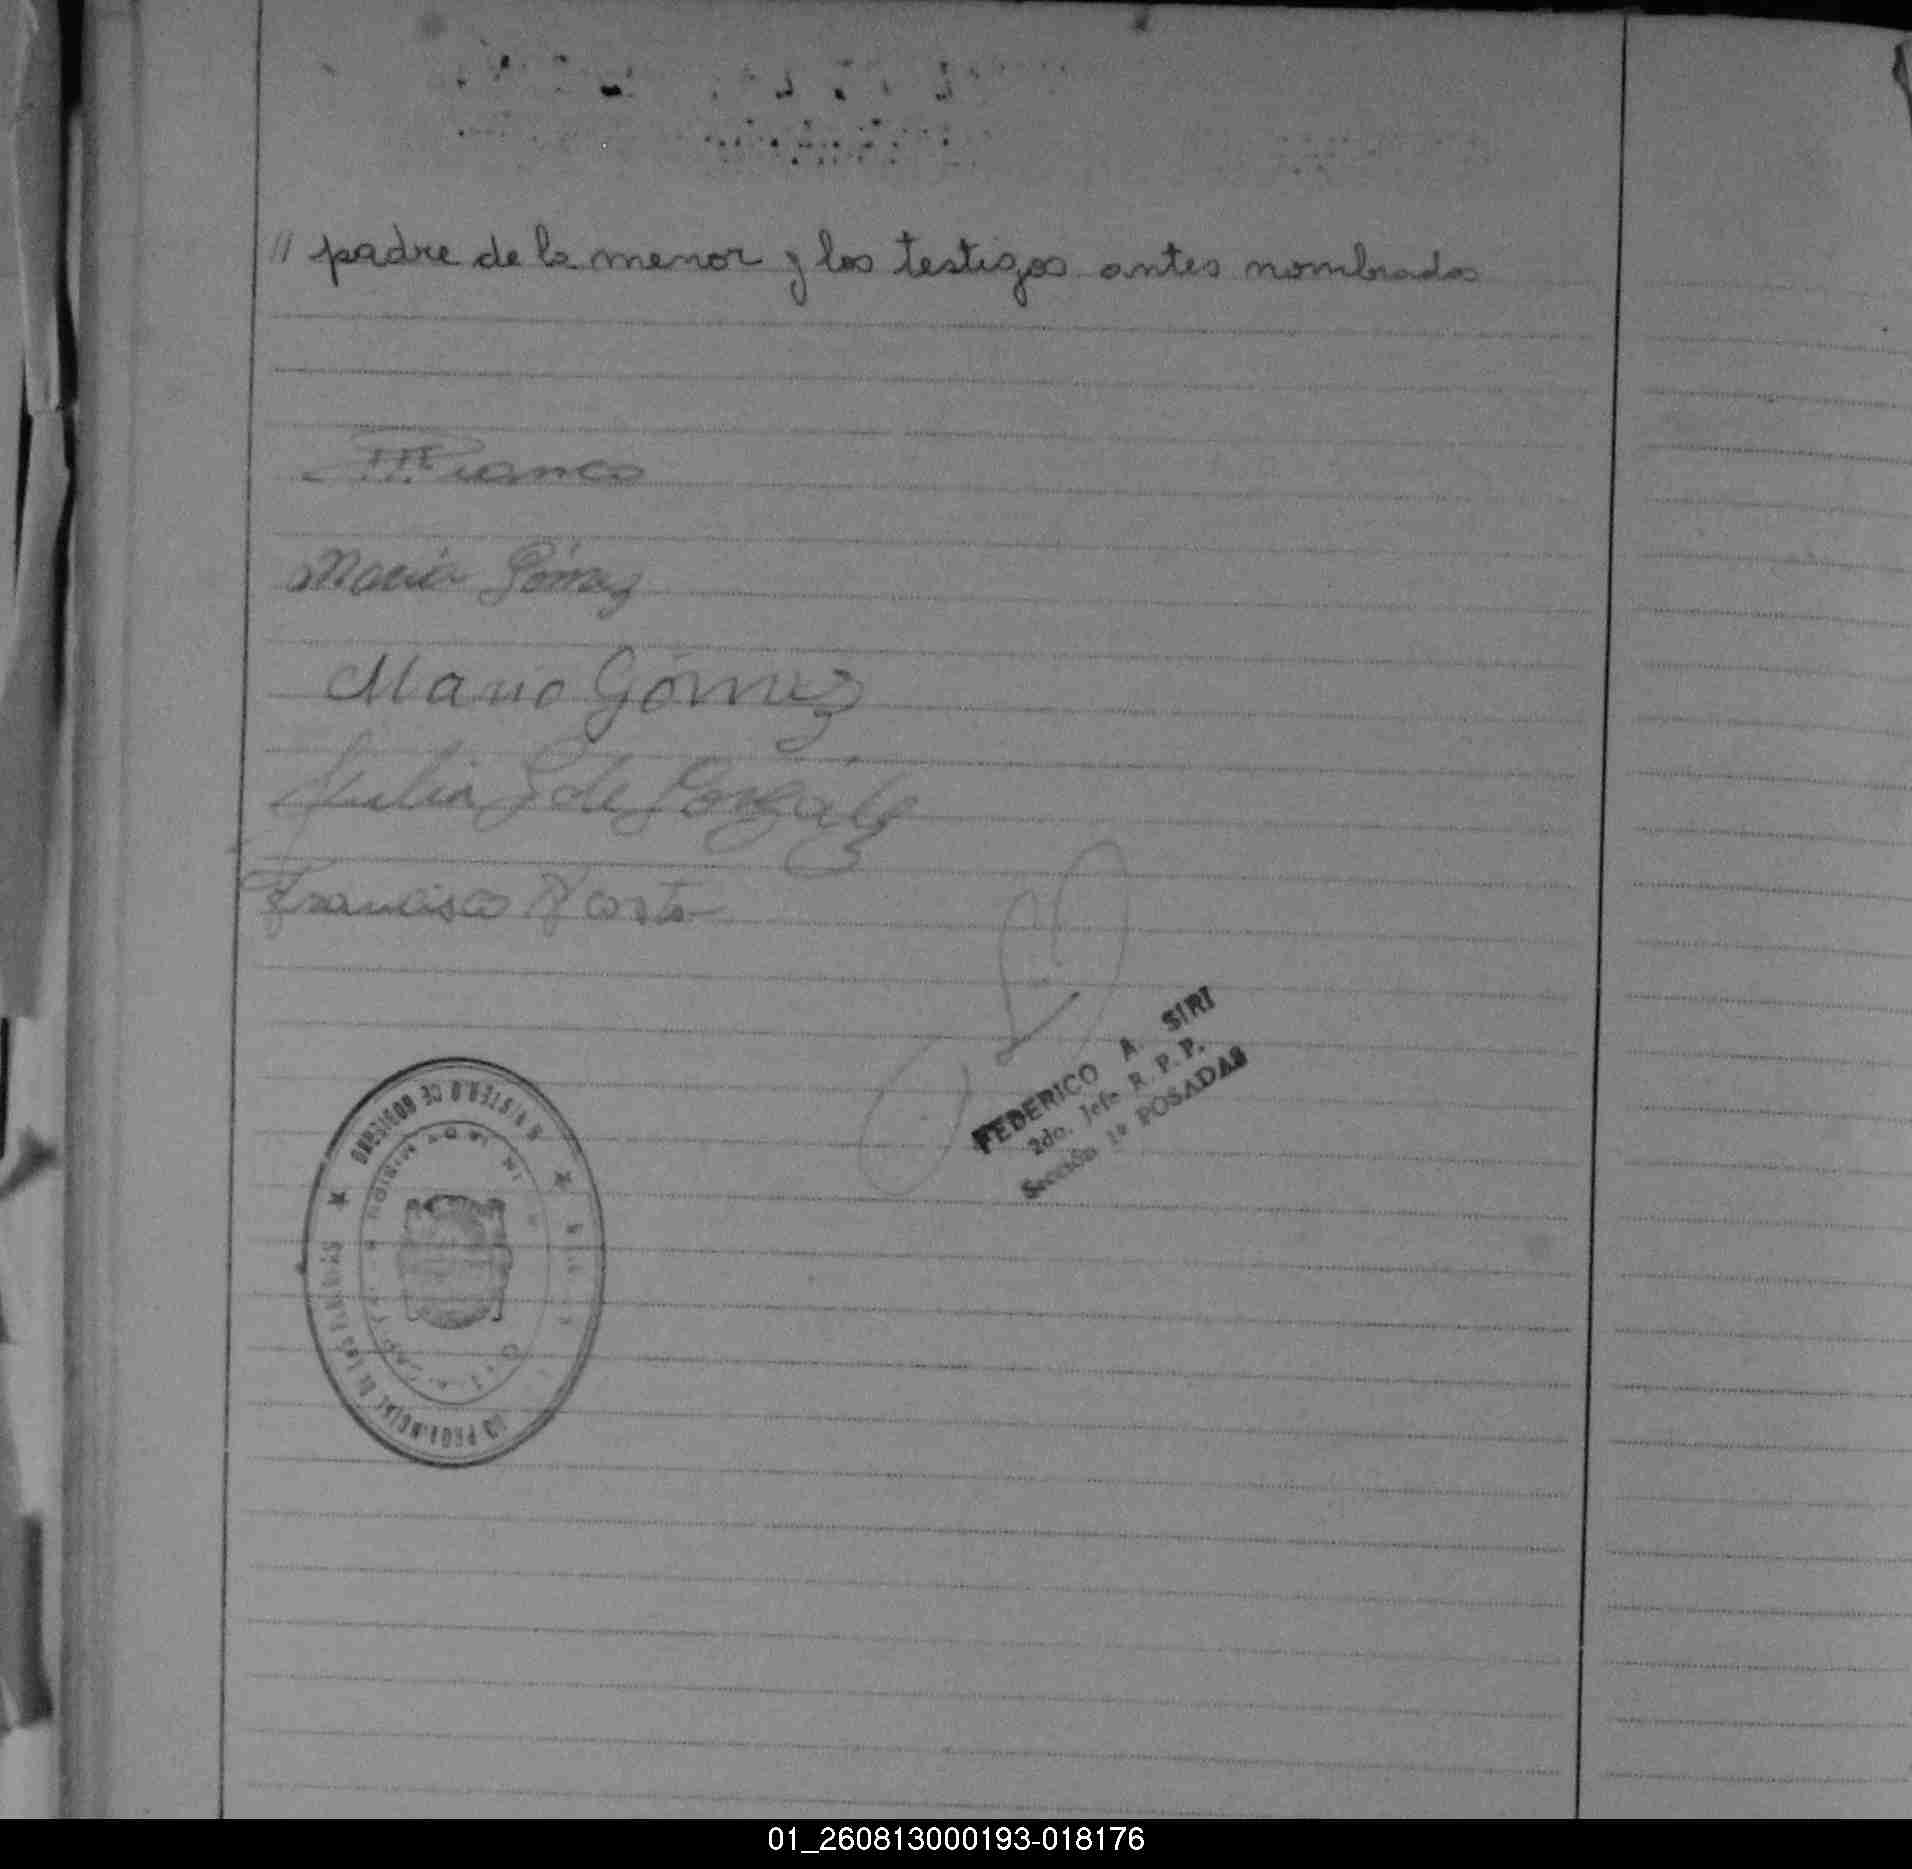 // padre de la menor y los testigos antes nombrados
Franco
María Gómez
Mario Gómez
Julia G de González
Francisco Acosta
FEDERICO A. SIRI
2do. Jefe R. P. P.
Sección 1ª POSADAS
MINISTERIO DE GOBIERNO
REGISTRO PROVINCIAL DE LAS PERSONAS
01_260813000193-018176